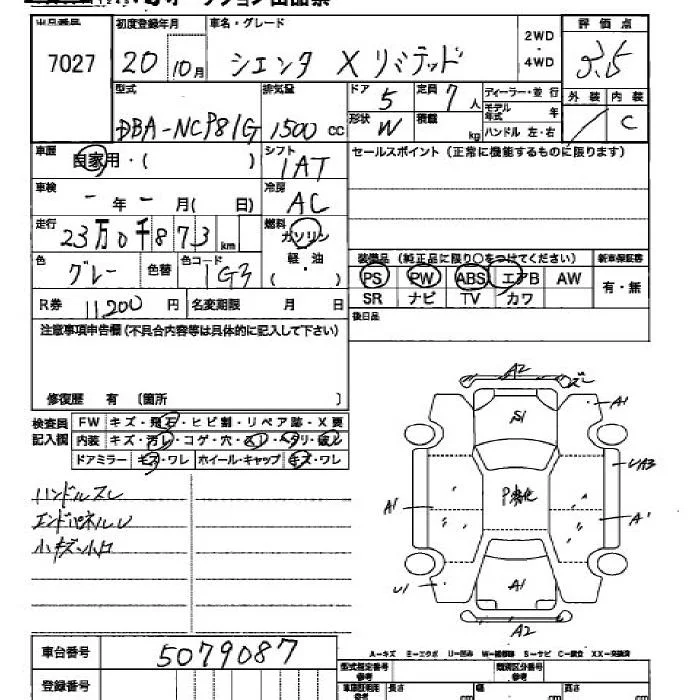 オークション出品票
出品番号 初度登録年月 車名・グレード 2WD ・ 4WD 評価点
7027 20 10月 シエンタ Xリミテッド 3.5
型式 排気量 ドア 5 定員 7人 ディーラー・並行 外装 内装
DBA-NCP81G 1500cc 形状 W 積載 kg モデル年式 年 ハンドル 左・右 / C
車歴 自家用・( ) シフト 1AT セールスポイント(正常に機能するものに限ります)
車検 - 年 - 月( 日) 冷房 AC
走行 23万0千873km 燃料 ガソリン 軽・油 ( )
色 グレー 色替 色コード 1G3
装備品(純正品に限り○をつけてください) 新車保証書
PS PW ABS エアB AW 有・無
SR ナビ TV カワ
R券 11200円 名変期限 月 日 後日品
注意事項申告欄(不具合内容等は具体的に記入して下さい)
修復歴 有〔箇所 〕
検査員記入欄 FW キズ・飛石・ヒビ割・リペア跡・X要
内装 キズ・汚レ・コゲ・穴・スレ・ヘタリ・破レ
ドアミラー キズ・ワレ ホイール・キャップ キズ・ワレ
ハンドルスレ
エンドパネルU
小キズ・小凹
A2
ズレ
A1
S1
UA3
P劣化
A1
A1
U1
A1
A2
車台番号 5079087
A=キズ E=エクボ U=凹み W=補修跡 S=サビ C=腐食 XX=交換済
登録番号
型式指定番号 参考 類別区分番号 参考
長さ cm 幅 cm 高さ cm